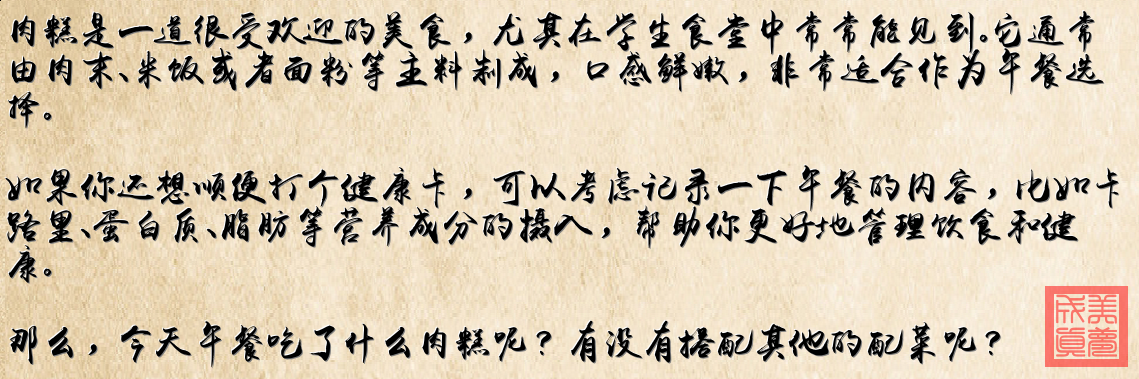 肉糕是一道很受欢迎的美食，尤其在学生食堂中常常能见到。它通常
由肉末、米饭或者面粉等主料制成，口感鲜嫩，非常适合作为午餐选
择。
如果你还想顺便打个健康卡，可以考虑记录一下午餐的内容，比如卡
路里、蛋白质、脂肪等营养成分的摄入，帮助你更好地管理饮食和健
康。
那么，今天午餐吃了什么肉糕呢？有没有搭配其他的配菜呢？
美夢成真